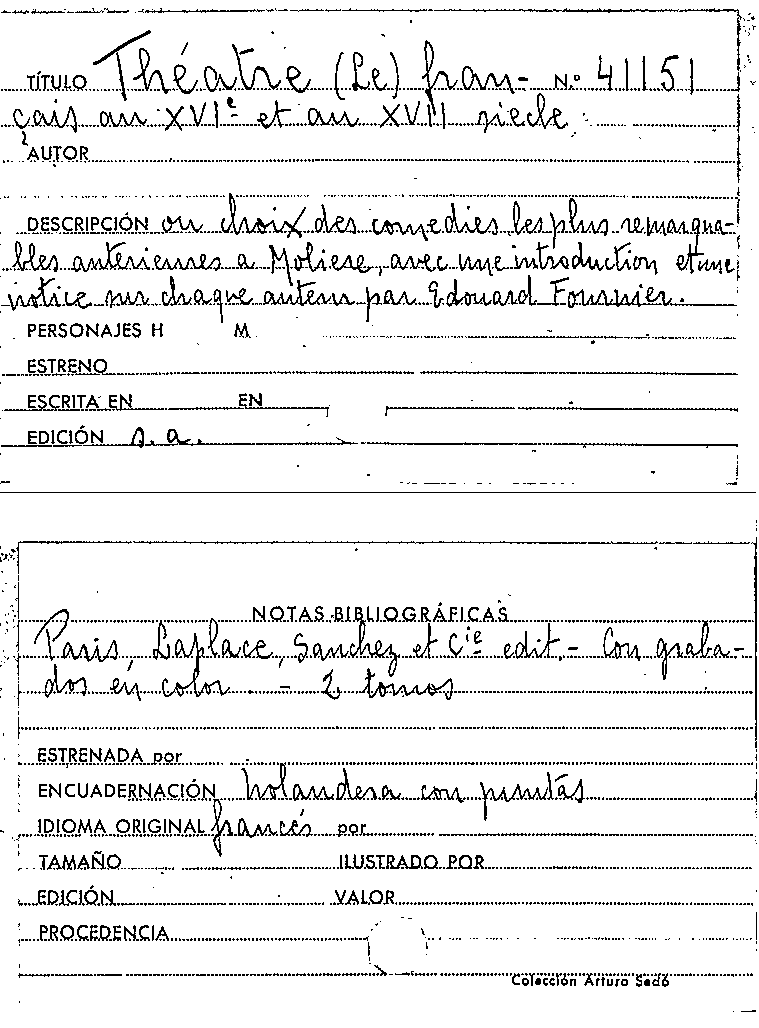 TÍTULO Théatre (Le) fran- N.º 41151
çais au XVIe et au XVII siecle
AUTOR
DESCRIPCIÓN ou choix des comedies les plus remarqua-
bles anterieures a Moliere, avec une introduction et une
notice sur chaque auteur par Edouard Fournier.
PERSONAJES H M.
ESTRENO
ESCRITA EN EN
EDICIÓN s.a.
NOTAS BIBLIOGRÁFICAS
Paris, Laplace, Sanchez et Cie edit. - Con graba-
dos en color. - 2 tomos
ESTRENADA por
ENCUADERNACIÓN holandesa con puntas
IDIOMA ORIGINAL francés por
TAMAÑO ILUSTRADO POR
EDICIÓN VALOR
PROCEDENCIA
Colección Arturo Sedó